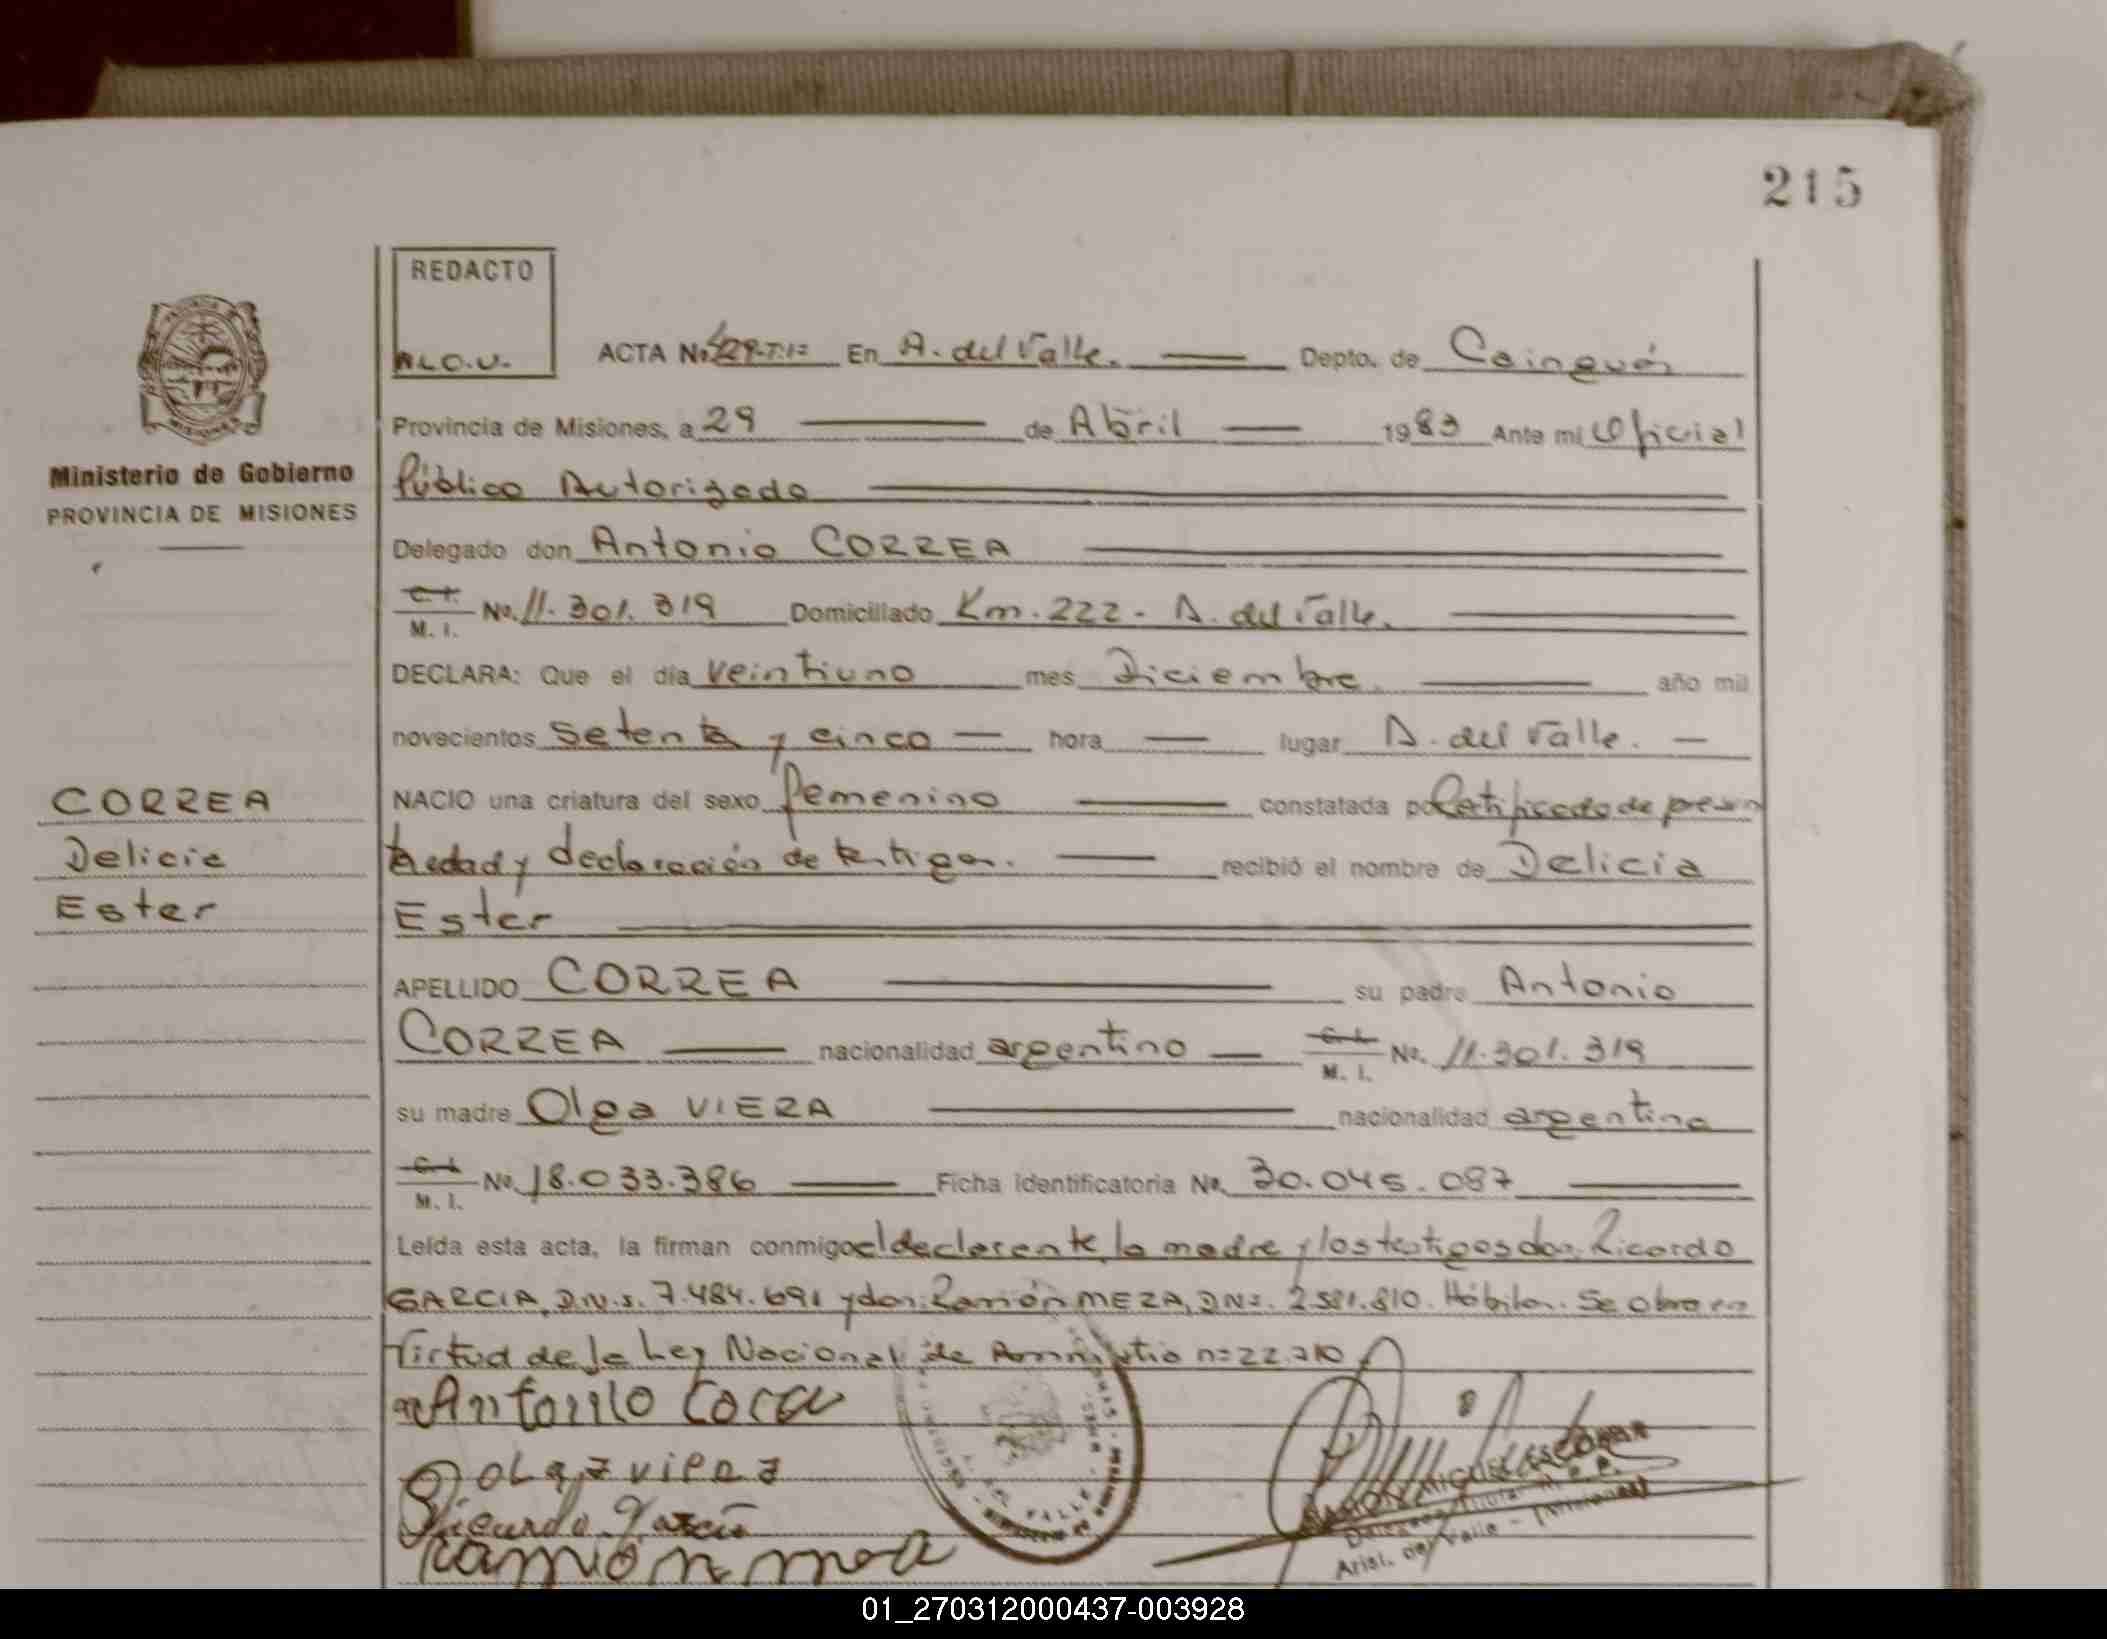 215
REDACTO
M.C.O.V.
ACTA No. 429-T:1= En A. del Valle. Depto. de Cainguás
Provincia de Misiones, a 29 de Abril 1983 Ante mi Oficial
Público Autorizado
Delegado don Antonio CORREA
C. I. M. I. No. 11.301.319 Domiciliado Km. 222 - A. del Valle.
DECLARA: Que el día veintiuno mes Diciembre año mil
novecientos setenta y cinco — hora — lugar A. del Valle. —
NACIO una criatura del sexo femenino constatada por Certificado de presun
ta edad y declaración de testigos. recibió el nombre de Delicia
Ester
APELLIDO CORREA su padre Antonio
CORREA nacionalidad argentino — C. I. M. I. No. 11.301.319
su madre Olga VIERA nacionalidad argentina
C. I. M. I. No. 18.033.386 Ficha identificatoria No. 30.045.087
Leída esta acta, la firman conmigo el declarante, la madre y los testigos don: Ricardo
GARCIA, D.N.I. 7.484.691 y don: Ramón MEZA, DNI. 2.581.810. Hábiles. Se obra en
virtud de la Ley Nacional de Amnistia n= 22.710
Antonio Corea
Olga viera
Ricardo Garcia
ramón meza
RAMON MIGUEL ESCOBAR
Delegado Titular R. P.
Arist. del Valle - (Misiones)
Ministerio de Gobierno
PROVINCIA DE MISIONES
CORREA
Delicia
Ester
01_270312000437-003928